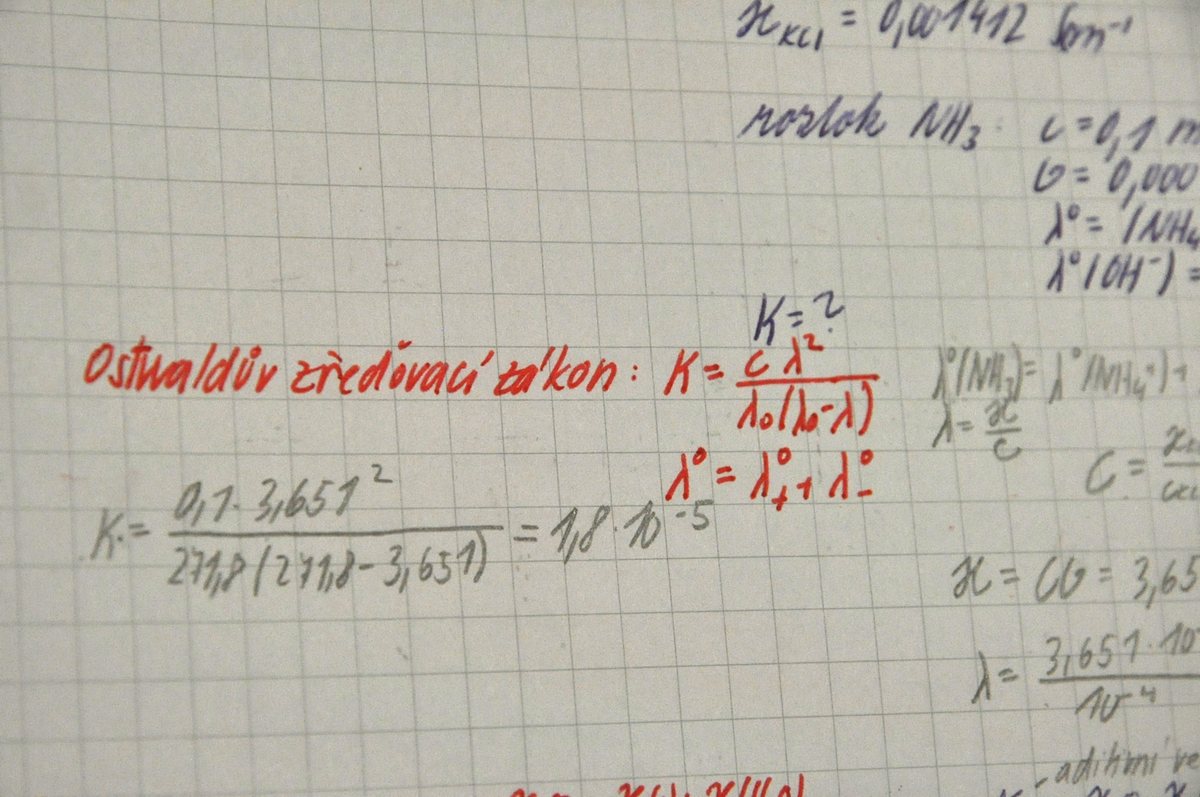 ϰ_KCl = 0,001412 Sm⁻¹
roztok NH₃: c = 0,1 m
G = 0,000
λ⁰ = (NH₄
λ⁰(OH⁻) =
K = ?
Ostwaldův zřeďovací zákon: K = c λ² / λ₀(λ₀-λ)
λ⁰ = λ⁰₊ + λ⁰₋
λ⁰(NH₃) = λ⁰(NH₄⁺) +
λ = ϰ / c
C =
K = 0,1 · 3,651² / 271,8 (271,8 - 3,651) = 1,8 · 10⁻⁵
ϰ = CG = 3,65
λ = 3,651 · 10 / 10⁻⁴
- aditivní ve